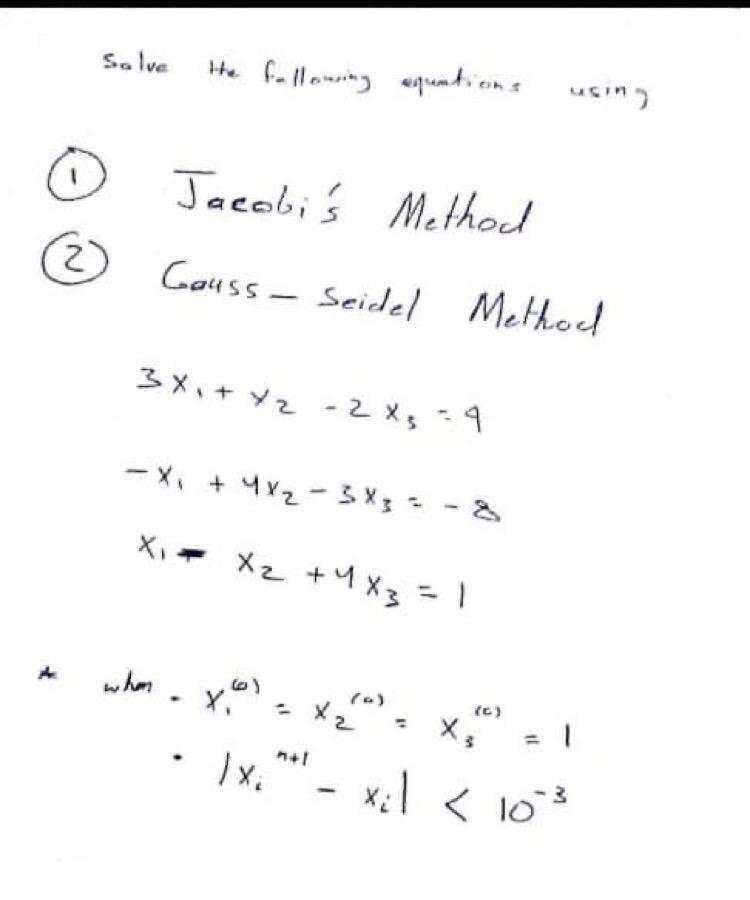 Solve the following equations using
① Jacobi's Method
② Gauss - Seidel Method
3x₁ + x₂ - 2x₃ = 9
-x₁ + 4x₂ - 3x₃ = -8
x₁ - x₂ + 4x₃ = 1
* when • x₁⁽⁰⁾ = x₂⁽⁰⁾ = x₃⁽⁰⁾ = 1
• |xᵢⁿ⁺¹ - xᵢ| < 10⁻³